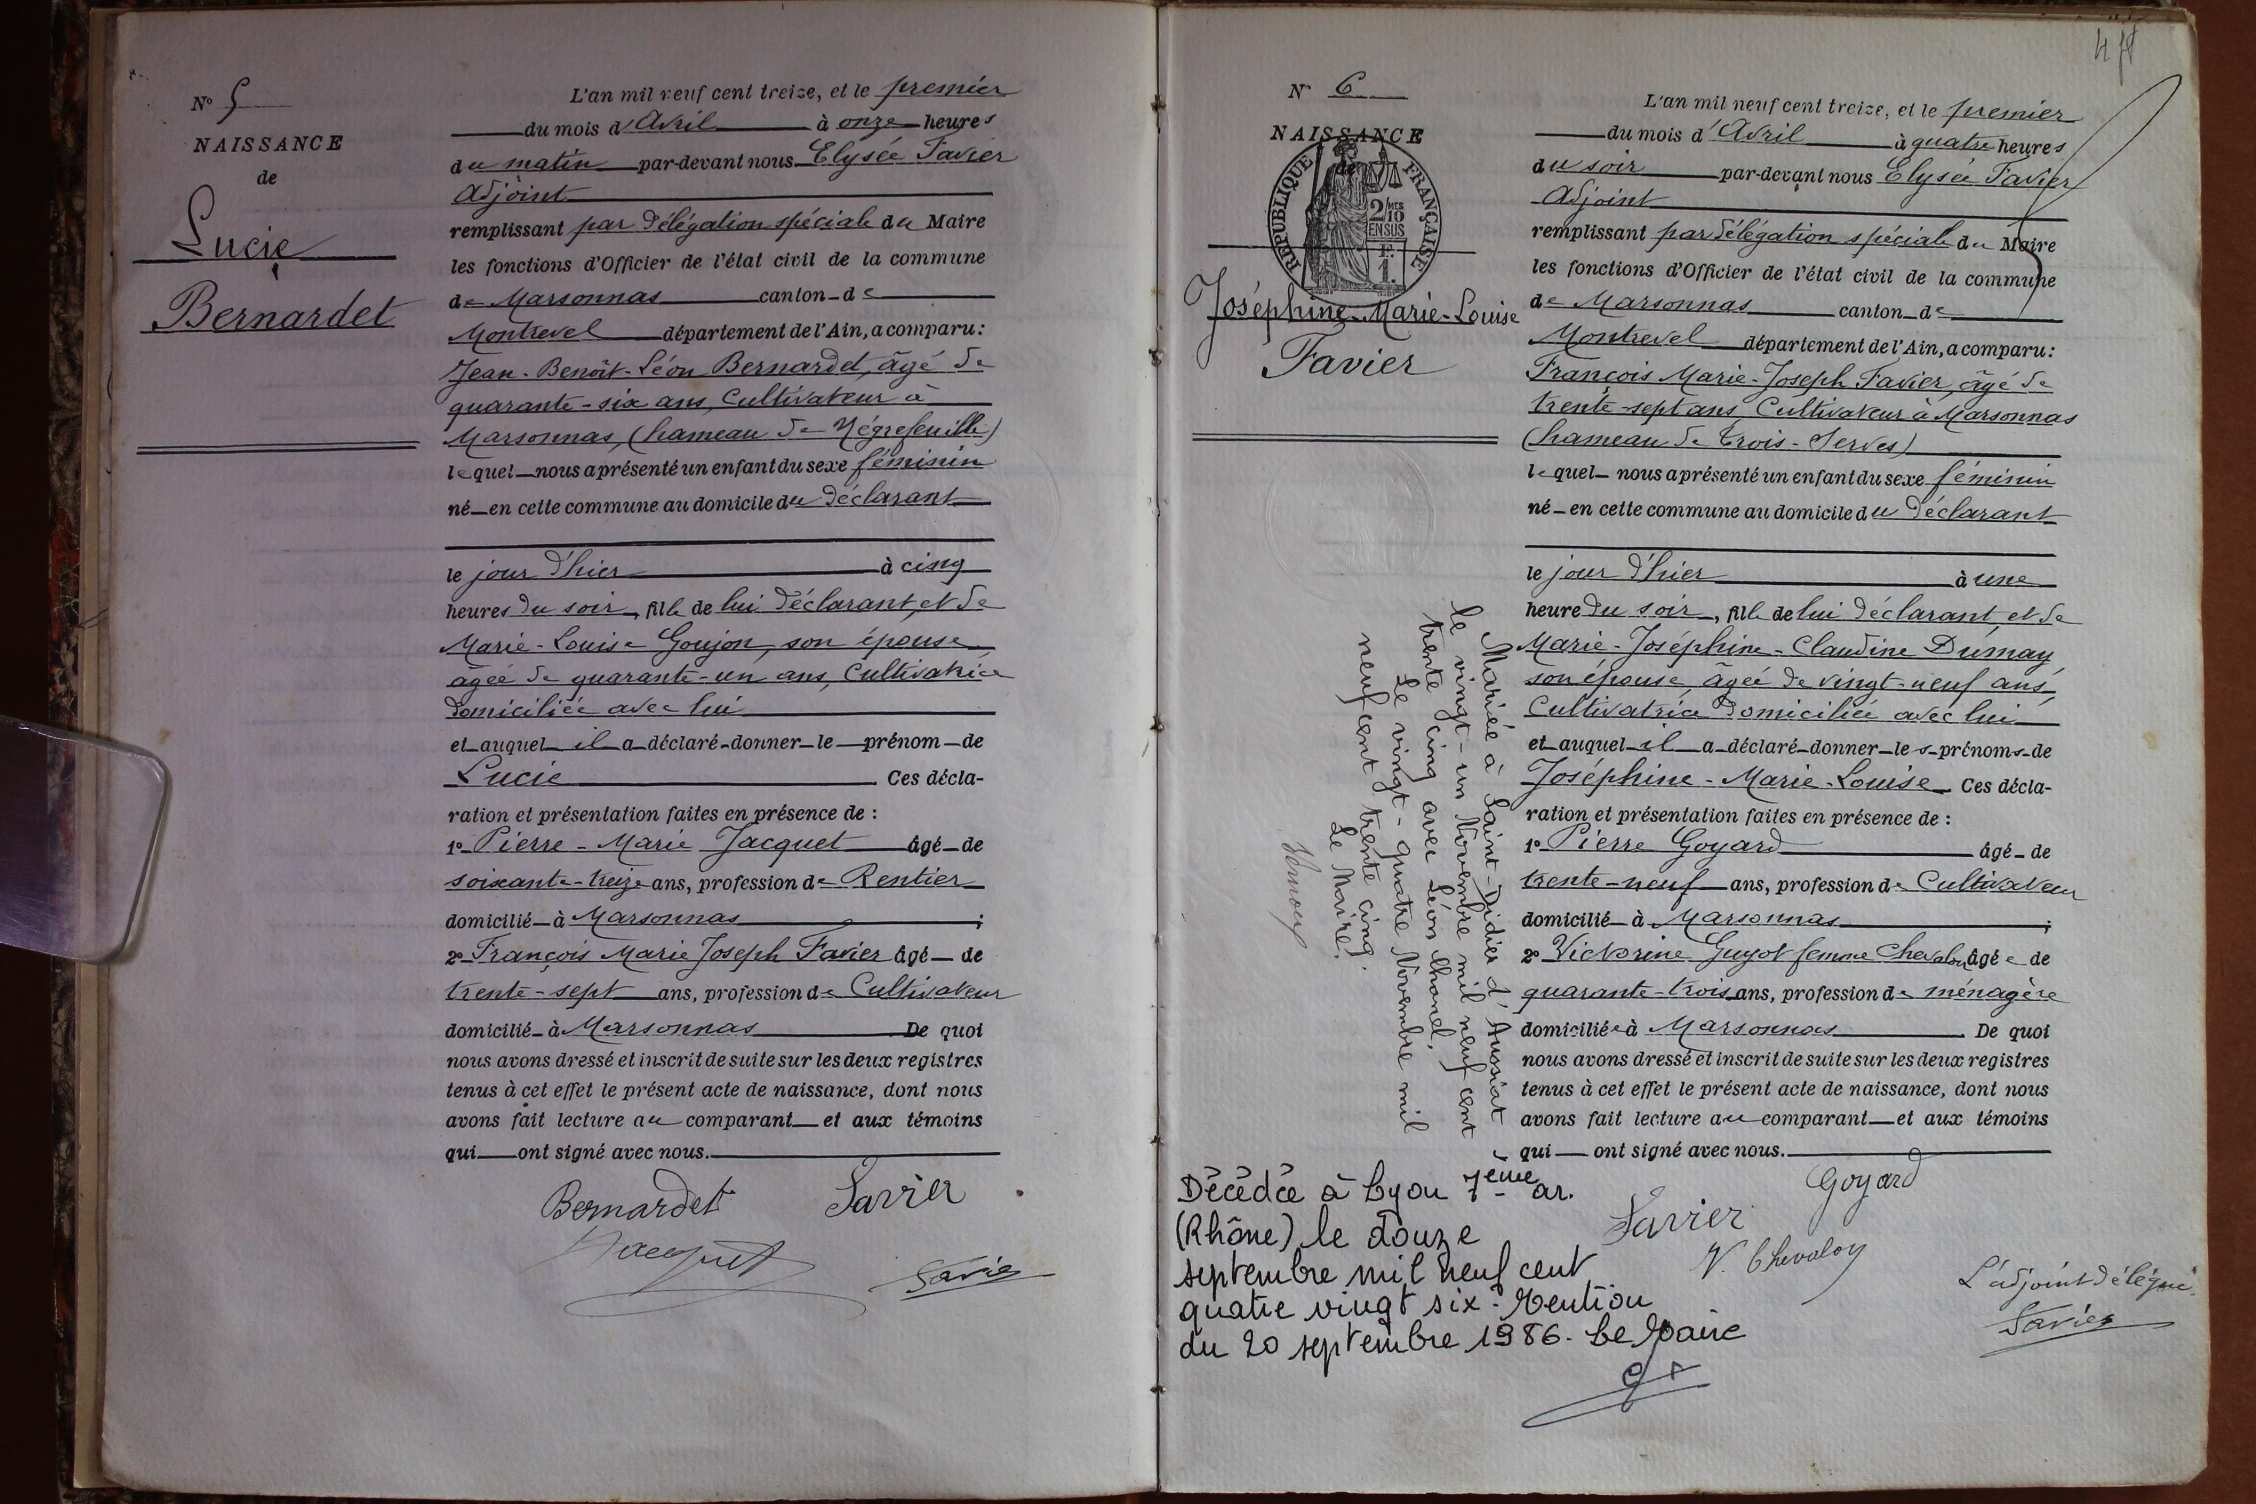 N° 5
NAISSANCE
de
Lucie
Bernardet
L'an mil neuf cent treize, et le premier
du mois d'Avril à onze heures
du matin par-devant nous Elysée Favier
Adjoint
remplissant par délégation spéciale du Maire
les fonctions d'Officier de l'état civil de la commune
de Marsonnas canton de
Montrevel département de l'Ain, a comparu:
Jean-Benoît-Léon Bernardet, âgé de
quarante-six ans, Cultivateur à
Marsonnas, (hameau de Négrefeuille)
lequel nous a présenté un enfant du sexe féminin
né en cette commune au domicile du déclarant
le jour d'hier à cinq
heures du soir, fille de lui déclarant, et de
Marie-Louise Goujon, son épouse
âgée de quarante-un ans, Cultivatrice
domiciliée avec lui
et auquel il a déclaré donner le prénom de
Lucie Ces décla-
ration et présentation faites en présence de :
1° Pierre-Marie Jacquet âgé de
soixante-treize ans, profession de Rentier
domicilié à Marsonnas ;
2° François Marie Joseph Favier âgé de
trente-sept ans, profession de Cultivateur
domicilié à Marsonnas De quoi
nous avons dressé et inscrit de suite sur les deux registres
tenus à cet effet le présent acte de naissance, dont nous
avons fait lecture au comparant et aux témoins
qui ont signé avec nous.
Bernardet Favier
Jacquet
Favier
N° 6
NAISSANCE
de
RÉPUBLIQUE FRANÇAISE
2/MES
10
EN SUS
F.
1.
Joséphine-Marie-Louise
Favier
L'an mil neuf cent treize, et le premier
du mois d'Avril à quatre heures
du soir par-devant nous Elysée Favier
Adjoint
remplissant par délégation spéciale du Maire
les fonctions d'Officier de l'état civil de la commune
de Marsonnas canton de
Montrevel département de l'Ain, a comparu:
François Marie-Joseph Favier, âgé de
trente-sept ans, Cultivateur à Marsonnas
(hameau de Trois-Serves)
lequel nous a présenté un enfant du sexe féminin
né en cette commune au domicile du déclarant
le jour d'hier à une
heure du soir, fille de lui déclarant, et de
Marie-Joséphine-Claudine Dumay
son épouse âgée de vingt-neuf ans,
Cultivatrice domiciliée avec lui
et auquel il a déclaré donner les prénoms de
Joséphine-Marie-Louise Ces décla-
ration et présentation faites en présence de :
1° Pierre Goyard âgé de
trente-neuf ans, profession de Cultivateur
domicilié à Marsonnas ;
2° Victorine Guyot femme Chevalon âgée de
quarante-trois ans, profession de ménagère
domiciliée à Marsonnas De quoi
nous avons dressé et inscrit de suite sur les deux registres
tenus à cet effet le présent acte de naissance, dont nous
avons fait lecture au comparant et aux témoins
qui ont signé avec nous.
Goyard
Favier
V. Chevalon
L'adjoint délégué
Favier
Mariée à Saint-Didier d'Aussiat
le vingt-un Novembre mil neuf cent
trente cinq avec Léon
Le vingt-quatre Novembre mil
neuf cent trente cinq.
Le Maire.
Décédée à Lyon 7ème ar.
(Rhône) le douze
septembre mil neuf cent
quatre vingt six. Mention
du 20 septembre 1986. Le Maire